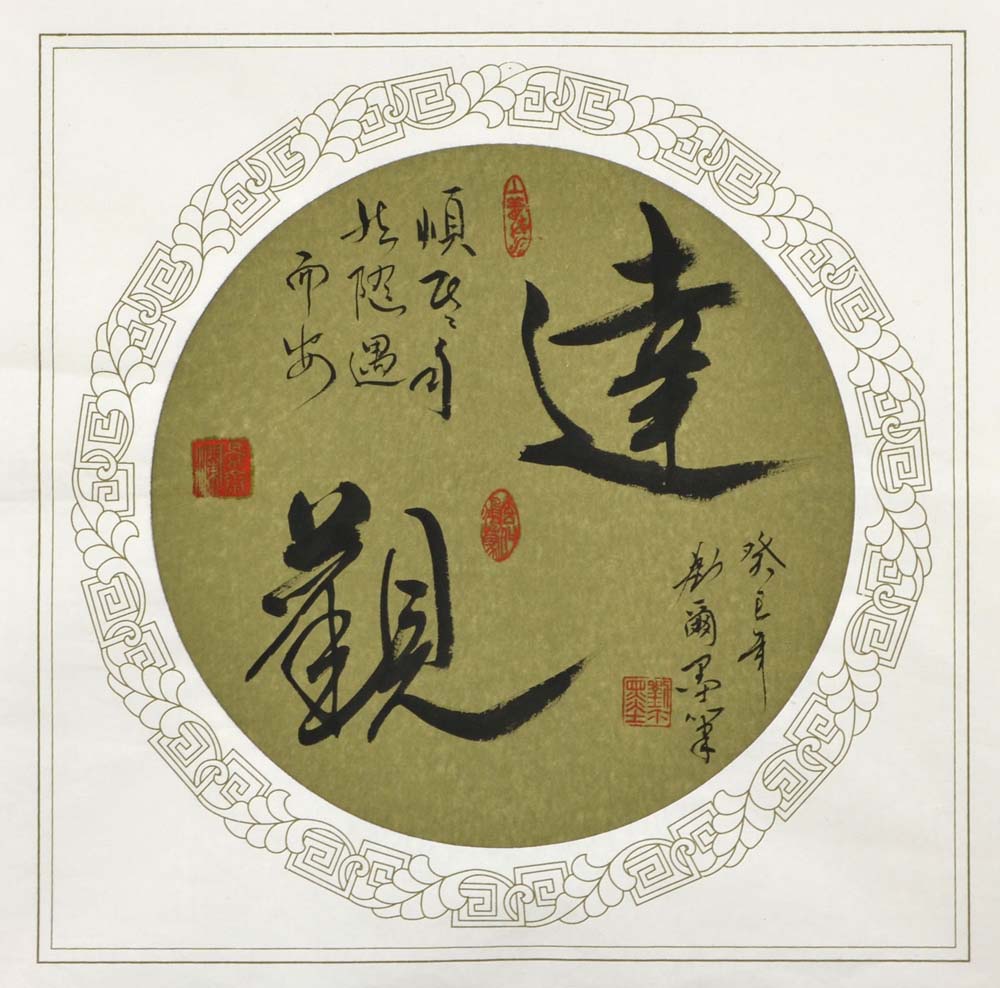 達
觀
順其自
然隨遇
而安
癸巳年
劉爾墨筆